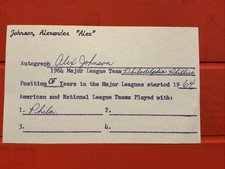 Johnson, Alexander "Alex"
Autograph Alex Johnson
1964 Major League Team Philadelphia Phillies
Position OF Years in the Major Leagues started 1964
American and National League Teams Played with:
1. Phila. 2.
3. 4.